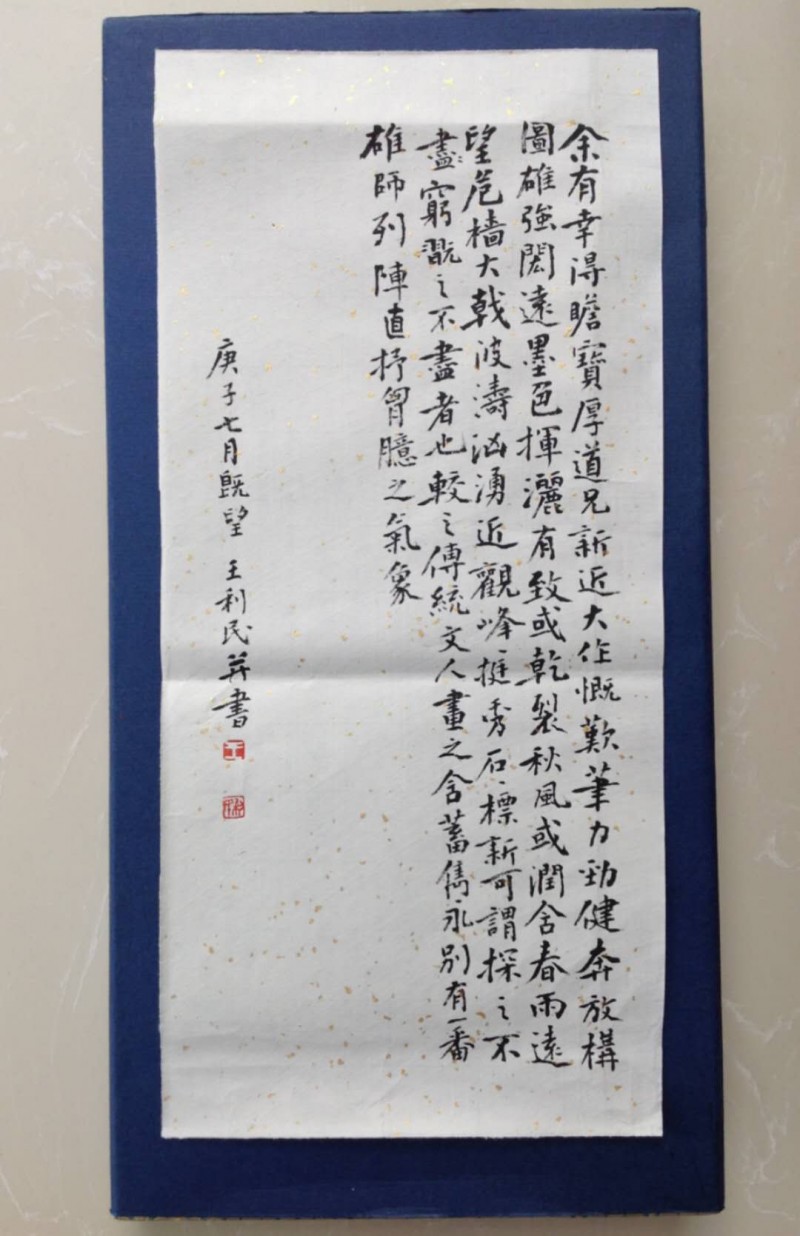 余有幸得瞻寶厚道兄新近大作慨歎筆力勁健奔放構
圖雄強閎遠墨色揮灑有致或乾裂秋風或潤含春雨遠
望危檣大戟波濤洶湧近觀峰挺秀石標新可謂探之不
盡窮翫之不盡者也較之傳統文人畫之含蓄雋永別有一番
雄師列陣直抒胷臆之氣象
庚子七月既望 王利民并書
王